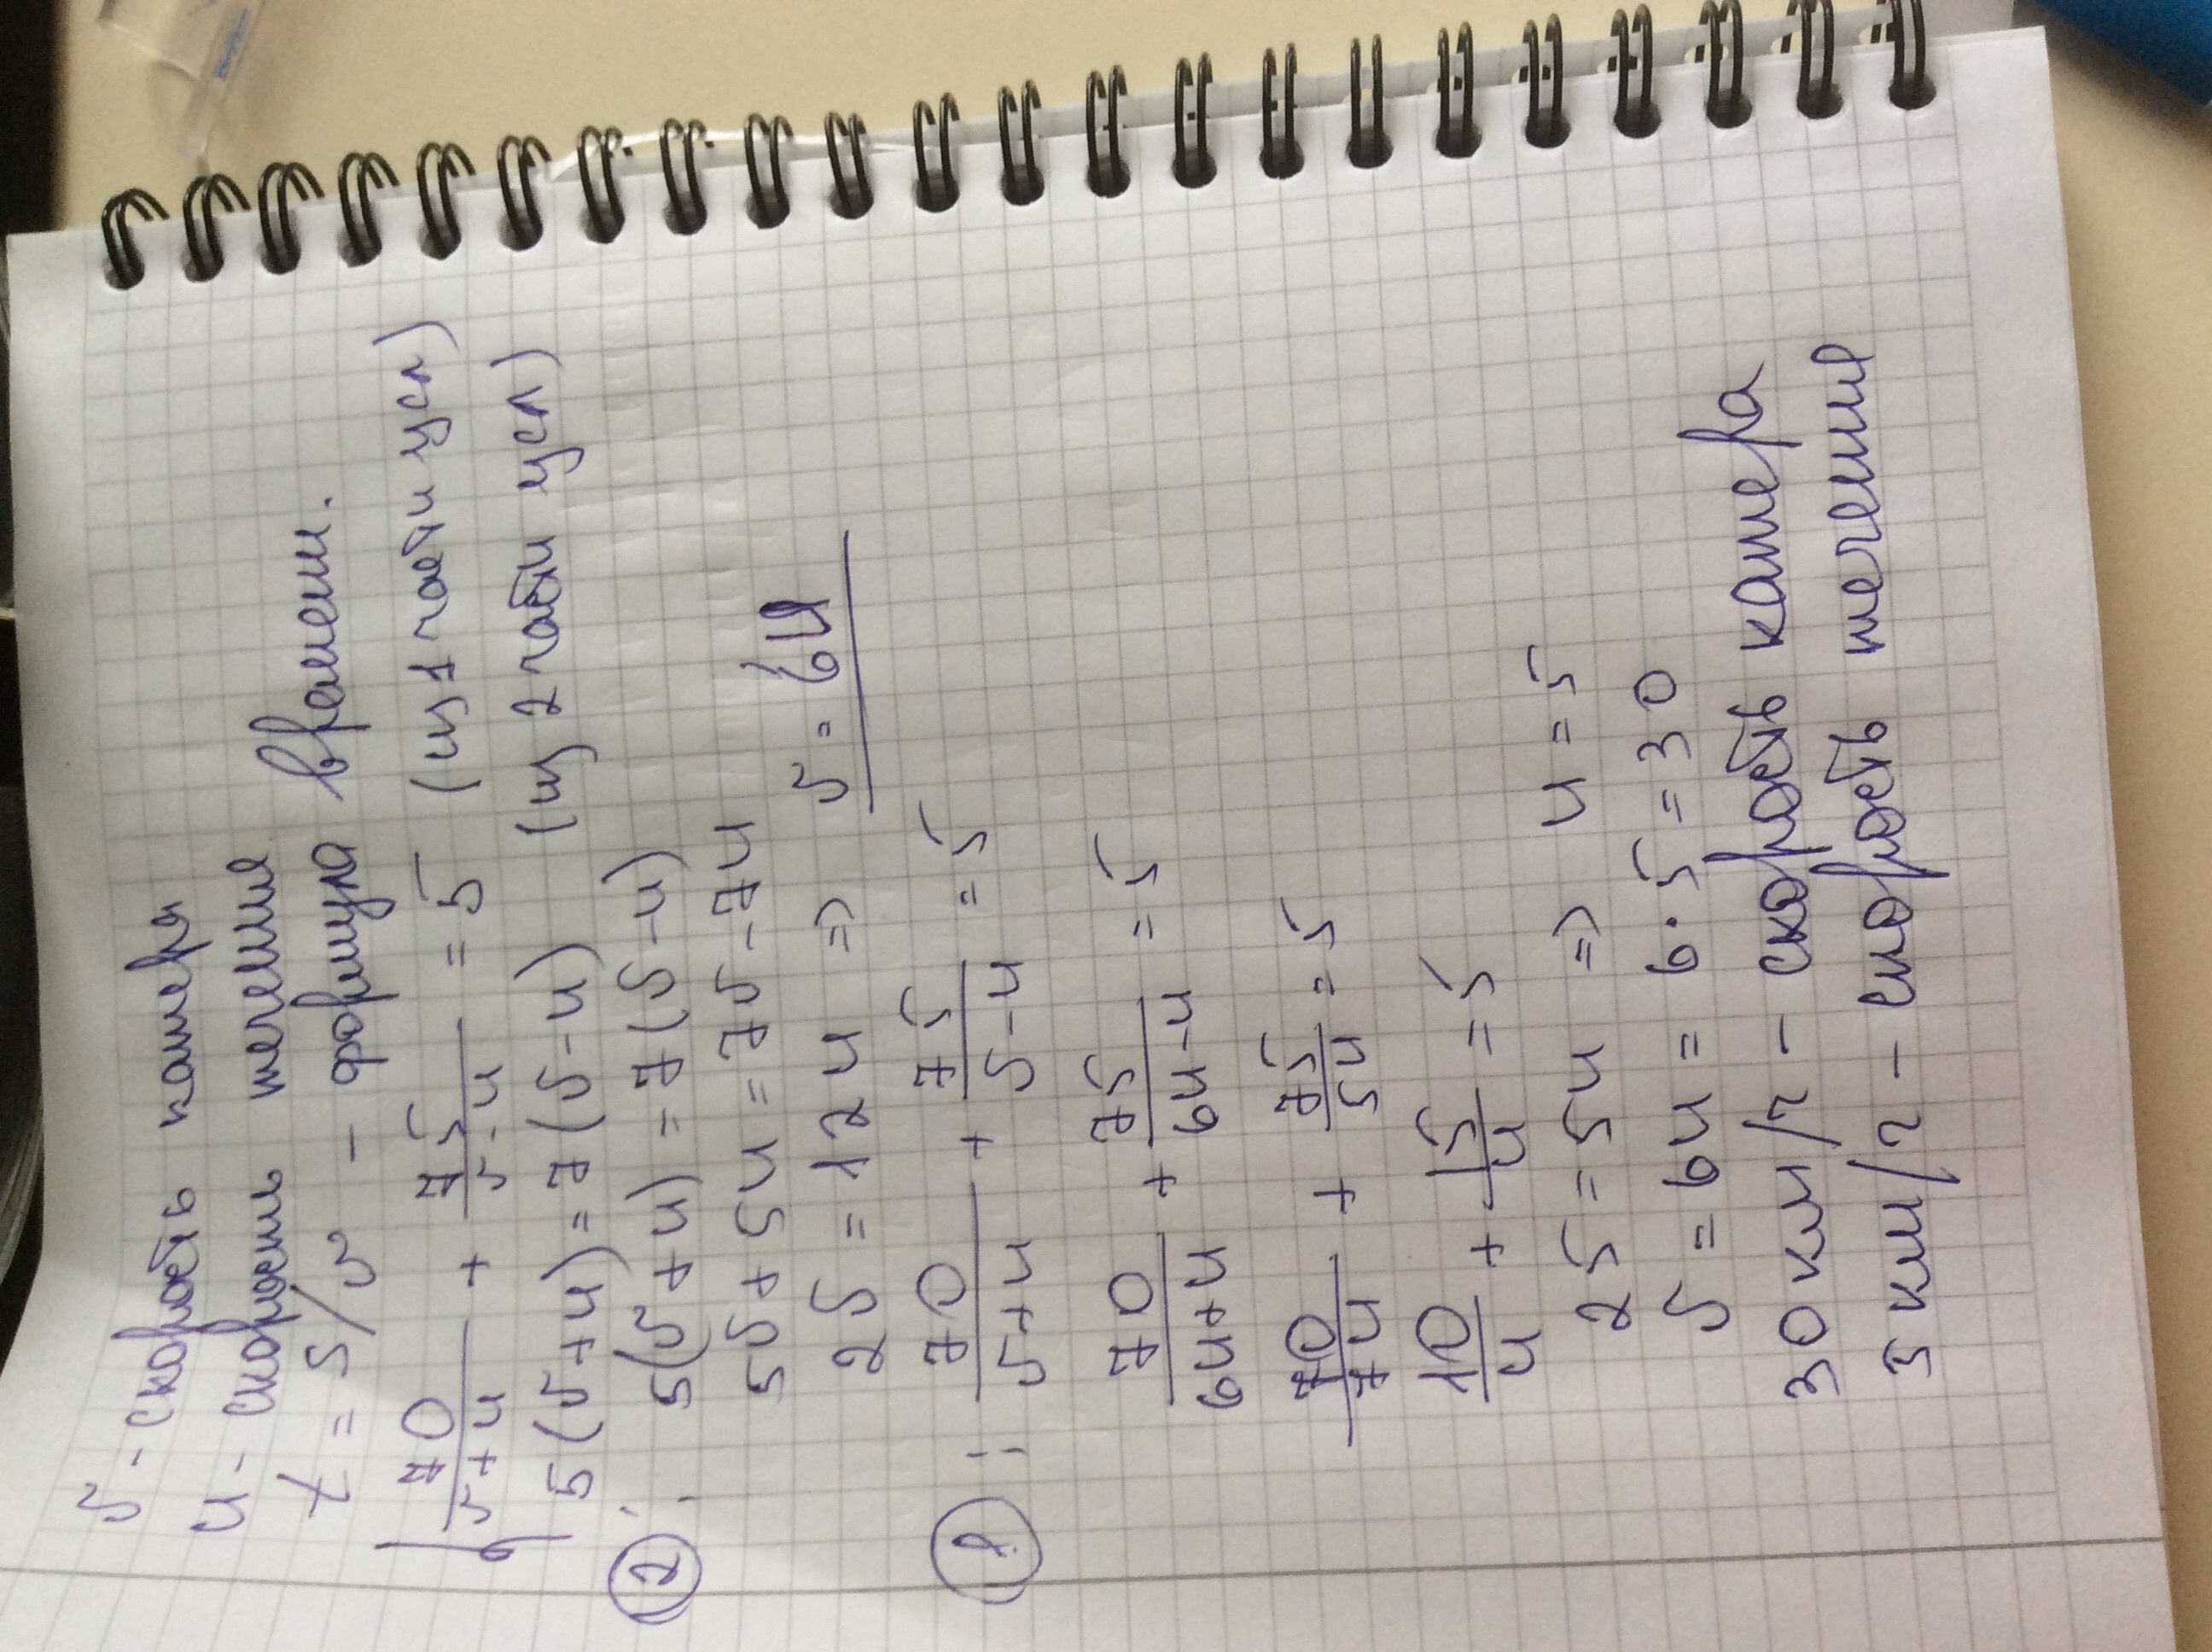 υ - скорость катера
u - скорость течения
t = s/v - формула времени.
70/υ+u + 75/υ-u = 5 (из 1 части усл)
5(υ+u) = 7(υ-u) (из 2 части усл)
② : 5(υ+u) = 7(υ-u)
5υ + 5u = 7υ - 7u
2υ = 12u => υ = 6u
① : 70/υ+u + 75/υ-u = 5
70/6u+u + 75/6u-u = 5
70/7u + 75/5u = 5
10/u + 15/u = 5
25 = 5u => u = 5
υ = 6u = 6·5 = 30
30 км/ч - скорость катера
5 км/ч - скорость течения